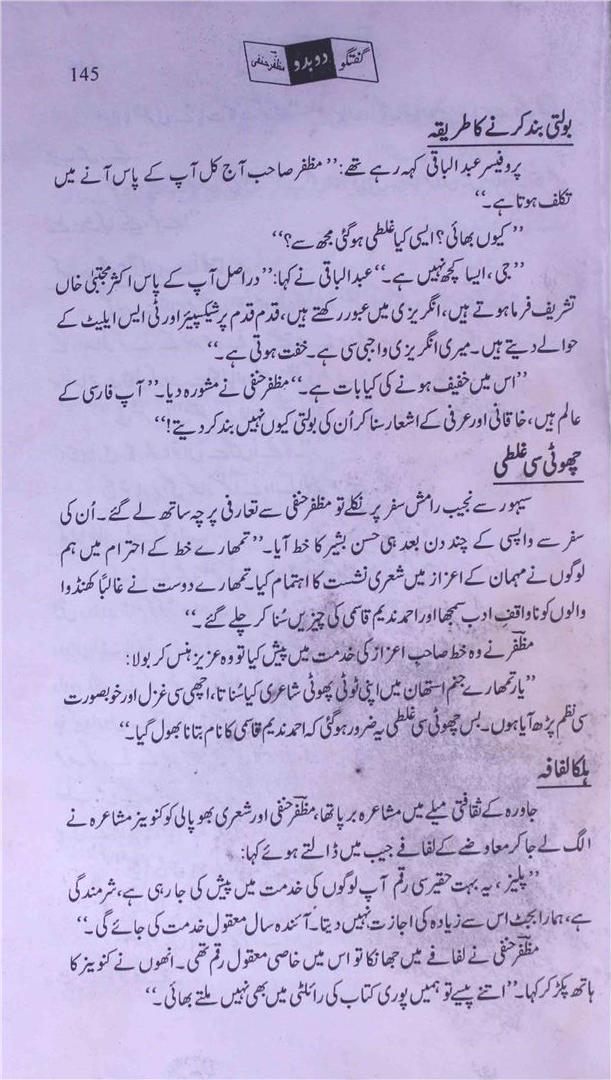 145
گفتگو دو بدو مظفر حنفی
بولتی بند کرنے کا طریقہ
پروفیسر عبدالباقی کہہ رہے تھے: ’’مظفر صاحب آج کل آپ کے پاس آنے میں
تکلف ہوتا ہے۔‘‘
’’کیوں بھائی؟ ایسی کیا غلطی ہوگئی مجھ سے؟‘‘
’’جی، ایسا کچھ نہیں ہے۔‘‘ عبدالباقی نے کہا: ’’دراصل آپ کے پاس اکثر مجتبیٰ خاں
تشریف فرما ہوتے ہیں، انگریزی میں عبور رکھتے ہیں، قدم قدم پر شیکسپیئر اور ٹی ایس ایلیٹ کے
حوالے دیتے ہیں۔ میری انگریزی واجبی سی ہے۔ خفت ہوتی ہے۔‘‘
’’اس میں خفیف ہونے کی کیا بات ہے۔‘‘ مظفر حنفی نے مشورہ دیا۔ ’’آپ فارسی کے
عالم ہیں، خاقانی اور عرفی کے اشعار سنا کر اُن کی بولتی کیوں نہیں بند کر دیتے!‘‘
چھوٹی سی غلطی
سیہور سے نجیب رامش سفر پر نکلے تو مظفر حنفی سے تعارفی پرچہ ساتھ لے گئے۔ اُن کی
سفر سے واپسی کے چند دن بعد ہی حسن بشیر کا خط آیا۔ ’’تمھارے خط کے احترام میں ہم
لوگوں نے مہمان کے اعزاز میں شعری نشست کا اہتمام کیا۔ تمھارے دوست نے غالباً کھنڈوا
والوں کو ناواقفِ ادب سمجھا اور احمد ندیم قاسمی کی چیزیں سُنا کر چلے گئے۔‘‘
مظفرؔ نے وہ خط صاحب اعزاز کی خدمت میں پیش کیا تو وہ عزیز ہنس کر بولا:
’’یار تمھارے جنم استھان میں اپنی ٹوٹی پھوٹی شاعری کیا سُناتا، اچھی سی غزل اور خوبصورت
سی نظم پڑھ آیا ہوں۔ بس چھوٹی سی غلطی یہ ضرور ہوگئی کہ احمد ندیم قاسمی کا نام بتانا بھول گیا۔‘‘
ہلکا لفافہ
جاورہ کے ثقافتی میلے میں مشاعرہ برپا تھا، مظفرؔ حنفی اور شعری بھوپالی کو کنوینر مشاعرہ نے
الگ لے جا کر معاوضے کے لفافے جیب میں ڈالتے ہوئے کہا:
’’پلیز، یہ بہت حقیر سی رقم آپ لوگوں کی خدمت میں پیش کی جا رہی ہے، شرمندگی
ہے، ہمارا بجٹ اس سے زیادہ کی اجازت نہیں دیتا۔ آئندہ سال معقول خدمت کی جائے گی۔‘‘
مظفرؔ حنفی نے لفافے میں جھانکا تو اس میں خاصی معقول رقم تھی۔ انھوں نے کنوینر کا
ہاتھ پکڑ کر کہا۔ ’’اتنے پیسے تو ہمیں پوری کتاب کی رائلٹی میں بھی نہیں ملتے بھائی۔‘‘